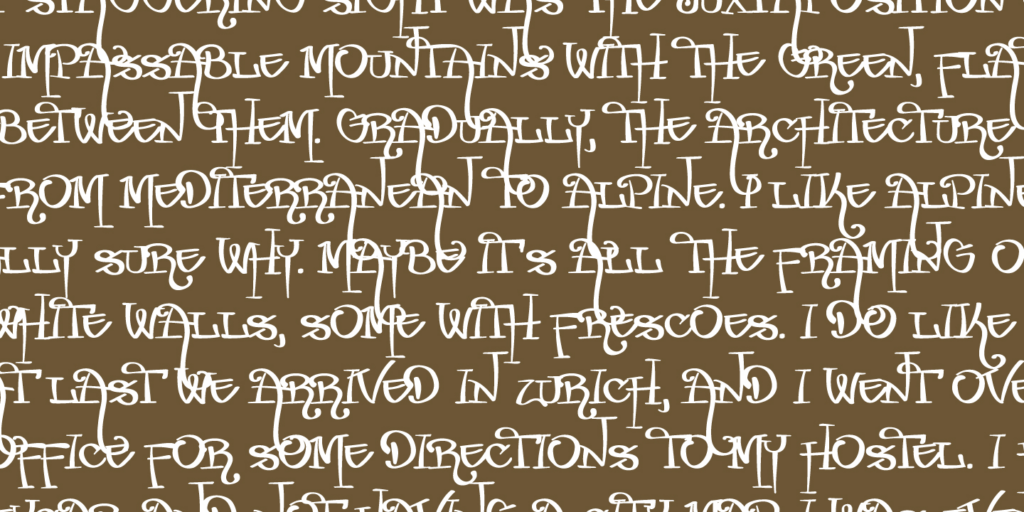 STAGGERING SIGHT WAS THE JUXTAPOSITION
IMPASSABLE MOUNTAINS WITH THE GREEN, FLA
BETWEEN THEM. GRADUALLY, THE ARCHITECTURE
FROM MEDITERRANEAN TO ALPINE. I LIKE ALPINE
LLY SURE WHY. MAYBE IT'S ALL THE FRAMING O
WHITE WALLS, SOME WITH FRESCOES. I DO LIKE
AT LAST WE ARRIVED IN ZURICH, AND I WENT OVE
OFFICE FOR SOME DIRECTIONS TO MY HOSTEL. I
AND NOT HAVING A CITY MAP, I WAS